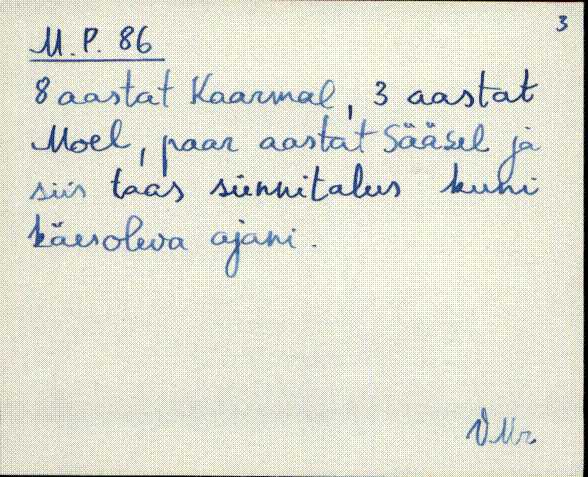 3
M. P. 86
8 aastat Kaarmal, 3 aastat
Moel, paar aastat Sääsel ja
siis taas sünnitalus kuni
käesoleva ajani.
VMr